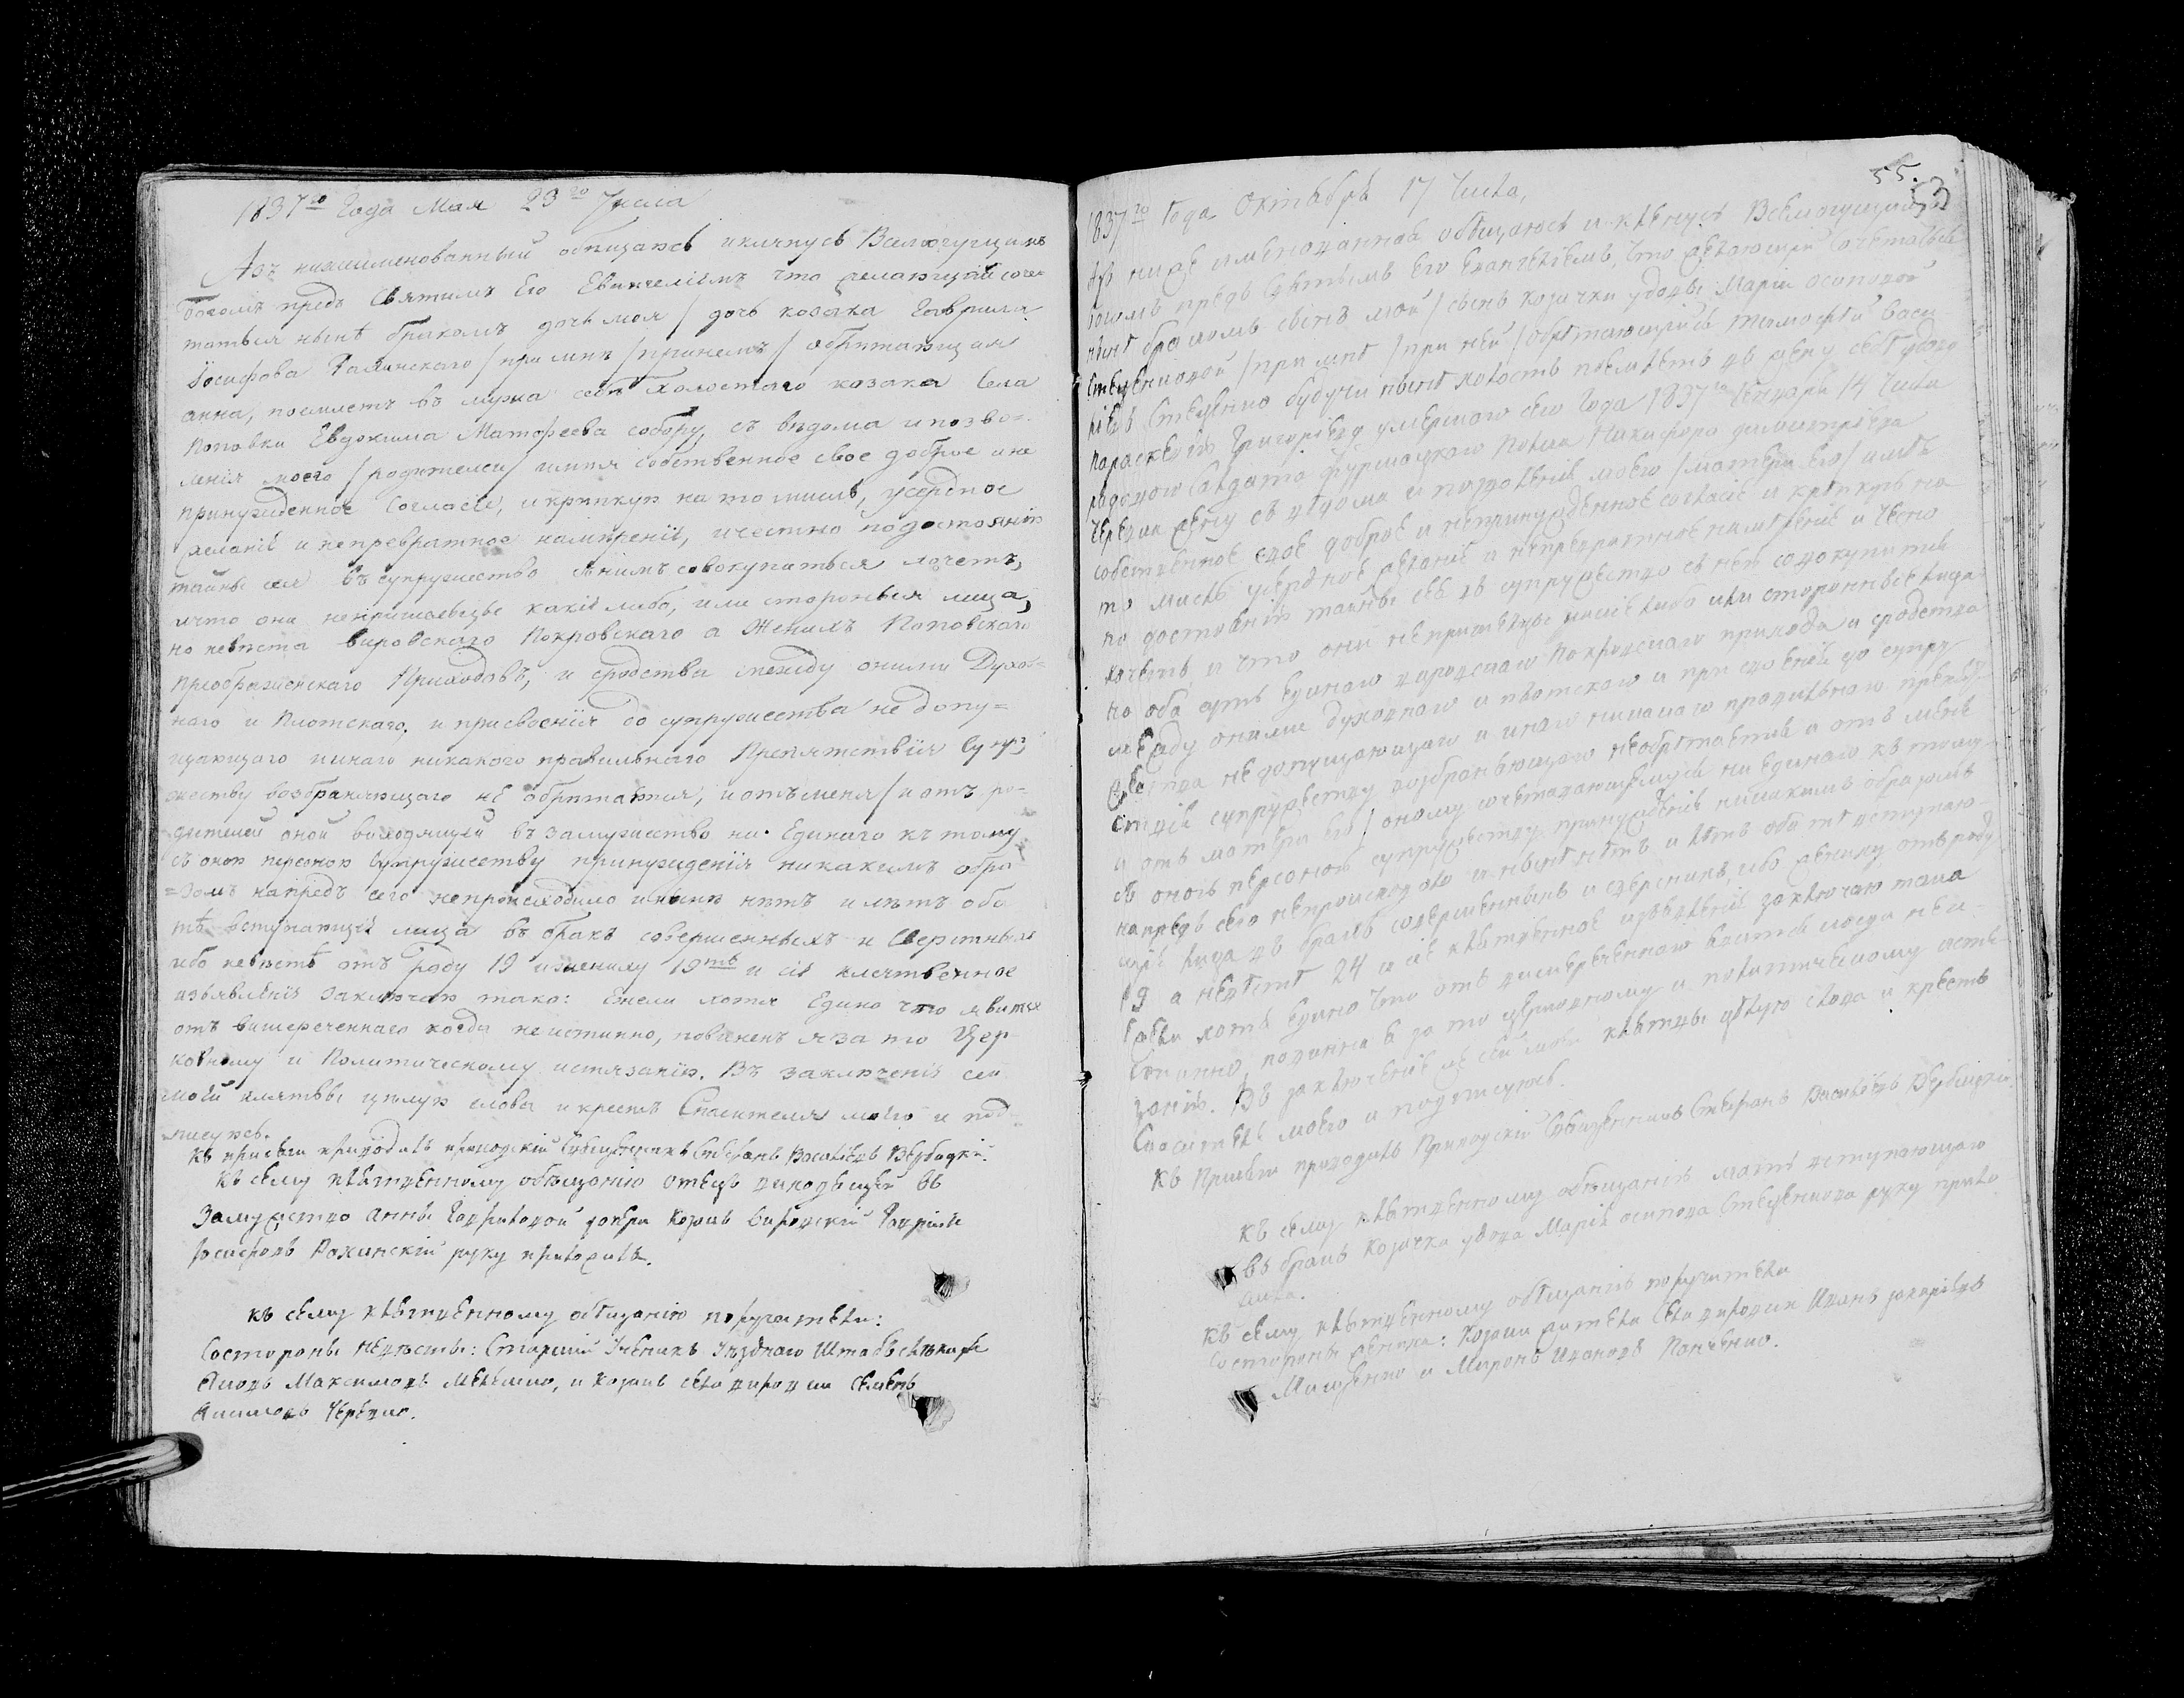 1837го Года Мая 23го Числа
Азъ нижеименованный обещаюсь и клянусь Всемогущимъ
Богомъ предъ Святымъ Его Евангелiемъ что желающая соче-
таться нынѣ бракомъ дочь моя / дочь козака Гаврила
Iосифова / при мнѣ / при немъ / обрѣтающаяся
анна, поемлетъ въ мужа себѣ холостаго козака Села
Поповки Евдокима Матфеева собору, съ вѣдома и позво=
ленія моего / родителей / имѣя собственное свое доброе и не
принужденное Согласіе, и крѣпкую на то мысль, усердное
желаніе и непревратное намѣреніе, и честно по достоянію
тайны сея въ супружество съ нимъ совокупиться хочетъ,
и что они непришельцы какіе либо, или стороннія лица,
но невѣста вировскаго Покровскаго а Женихъ Поповскаго
Преображенскаго Приходовъ, и сродства между оными Духов=
наго и Плотскаго, и присвоенія до супружества не допу=
щающаго и инаго никакого правильнаго Препятствія Супру
жеству возбраняющаго не обрѣтается, и отъ меня / и отъ ро-
дителей оной выходящей въ замужество ни Единаго къ тому
съ оною персоною Супружеству принужденія никакимъ обра
=зомъ напредъ сего непроисходило и нынѣ нѣтъ и лѣтъ оба
тѣ вступающіе лица въ бракъ совершенныхъ и Сверстныхъ
ибо невѣстѣ отъ роду 19 и жениху 19ть и сіе клятвенное
изъявленіе заключаю тако: Ежели хотя Едино что явится
отъ вышереченнаго когда неистинно, повиненъ я за то Цер-
ковному и Политическому истязанію. Въ заключеніе сей
моей клятвы цѣлую слова и крестъ Спасителя моего и под-
писуюсь.
Къ присягѣ приводилъ приходскій Священникъ Стефанъ Васильевъ Вербицкій.
Къ сему клятвенному обѣщанію отецъ выходящей въ
Замужство анны Гавриловой дочери Козакъ вировскій Гаврило
Iосифовъ руку приложилъ.
Къ сему клятвенному обѣщанію поручатели:
Состороны невѣсты: Старшій Ученикъ Уѣзднаго Штабълѣкаря
Яковъ Максимовъ, и Козакъ села вировки Семенъ
Акимовъ Чередно.
55.
53
1837го Года Октября 17 Числа,
Азъ ниже именованная обѣщаюсь и клянусь Всемогущимъ
Богомъ предъ Святымъ Его Евангеліемъ, что желающій сочетаться
нынѣ бракомъ сынъ мой / сынъ козачки удовы Маріи осиповой
Стеценковой / при мнѣ / при ней / обрѣтающійся Тимофѣй Васи
ліевъ Стеценко будучи нынѣ холостъ поемлетъ въ жену себѣ удову
Параскевію Григоріеву умершаго сего Года 1837го Генваря 14 Числа
рядоваго Солдата полка Никифора
жену съ вѣдома и позволенія моего / матери его / имѣя
собственное свое доброе и непринужденное согласіе и крѣпкую на
то мысль усердное желаніе и непревратное намѣреніе и честно
по достоянію тайны сея въ супружество съ нею совокупитися
хочетъ, и что они не пришельцы какіе либо или сторонные лица
но оба суть единаго вировскаго Покровскаго прихода и сродства
между оными духовнаго и плотскаго и присвоенія до супру
жества недопущающаго и инаго никакаго правильнаго препят
ствія супружеству возбраняющаго необрѣтается а отъ меня
и отъ матери его / оному сочетавающемуся ни единаго къ тому
съ оною персоною супружеству принужденія никакимъ образомъ
напредъ сего непроисходило и нынѣ нѣтъ и лѣтъ оба тѣ вступаю-
щіе лица въ бракъ совершенныхъ и сверстныхъ, ибо жениху отъ роду
19 а невѣстѣ 24 и сіе клятвенное изъявленіе заключаю тако
Ежели хотя едино что отъ вышереченнаго явится когда неи-
стинно, повинна я за то церковному и политическому истя-
занію. Въ заключеніе же сей моей клятвы цѣлую слова и крестъ
Спасителя моего и подписуюсь.
Къ Присягѣ приводилъ Приходскій Священникъ Стефанъ Васильевъ Вербицкій.
Къ сему клятвенному обѣщанію мать вступающаго
въ бракъ Козачка удова Марія осипова Стеценкова руку прило-
жила.
Къ сему клятвенному обѣщанію поручатели
Состороны жениха: Козаки жители села вировки Иванъ
Мищенко и Миронъ Ивановъ Панченко.